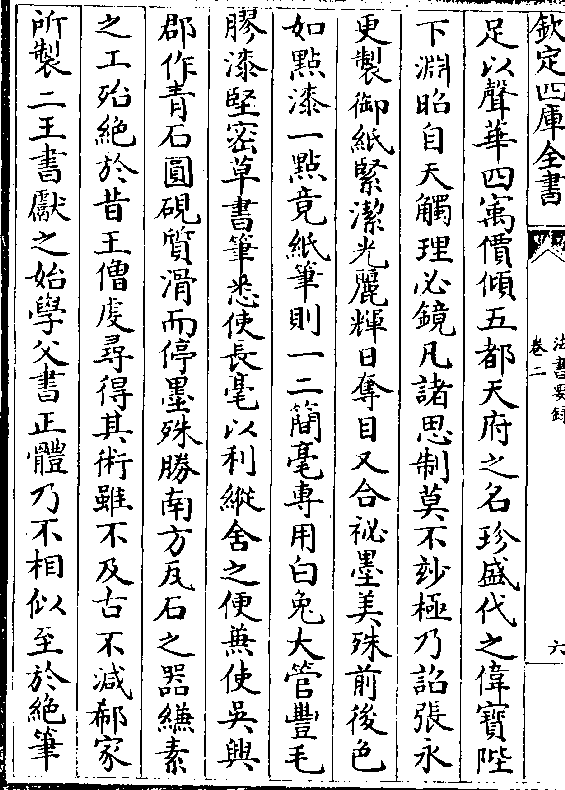 欽定四庫全書
法書要録
卷二
六
足以聲華四寓價傾五都天府之名珍盛代之偉寶陛
下淵昭自天觸理必鏡凡諸思制莫不妙極乃詔張永
更製御紙緊潔光麗輝日奪目又合祕墨美殊前後色
如點漆一點竟紙筆則一二簡毫專用白兔大管豐毛
膠漆堅密草書筆悉使長毫以利縱舍之便兼使吳興
郡作青石圓硯質滑而停墨殊勝南方瓦石之器縑素
之工殆絶於昔王僧䖍尋得其術雖不及古不減郗家
所製二王書獻之始學父書正體乃不相似至於絶筆